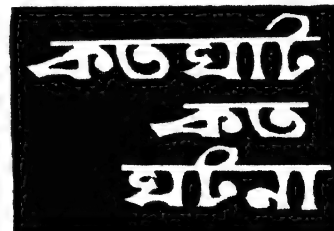 কত ঘাট
কত
ঘটনা